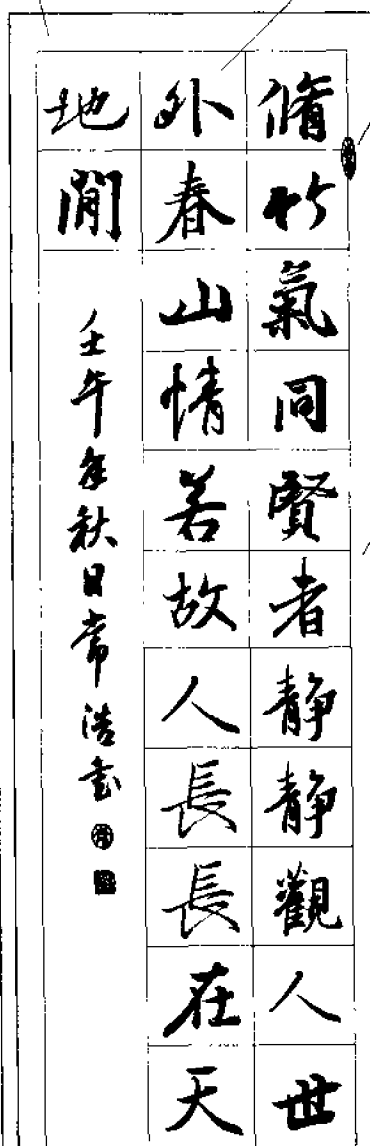 脩竹氣同賢者静静觀人世
外春山情若故人長長在天
地閒
壬午年秋日常浩書